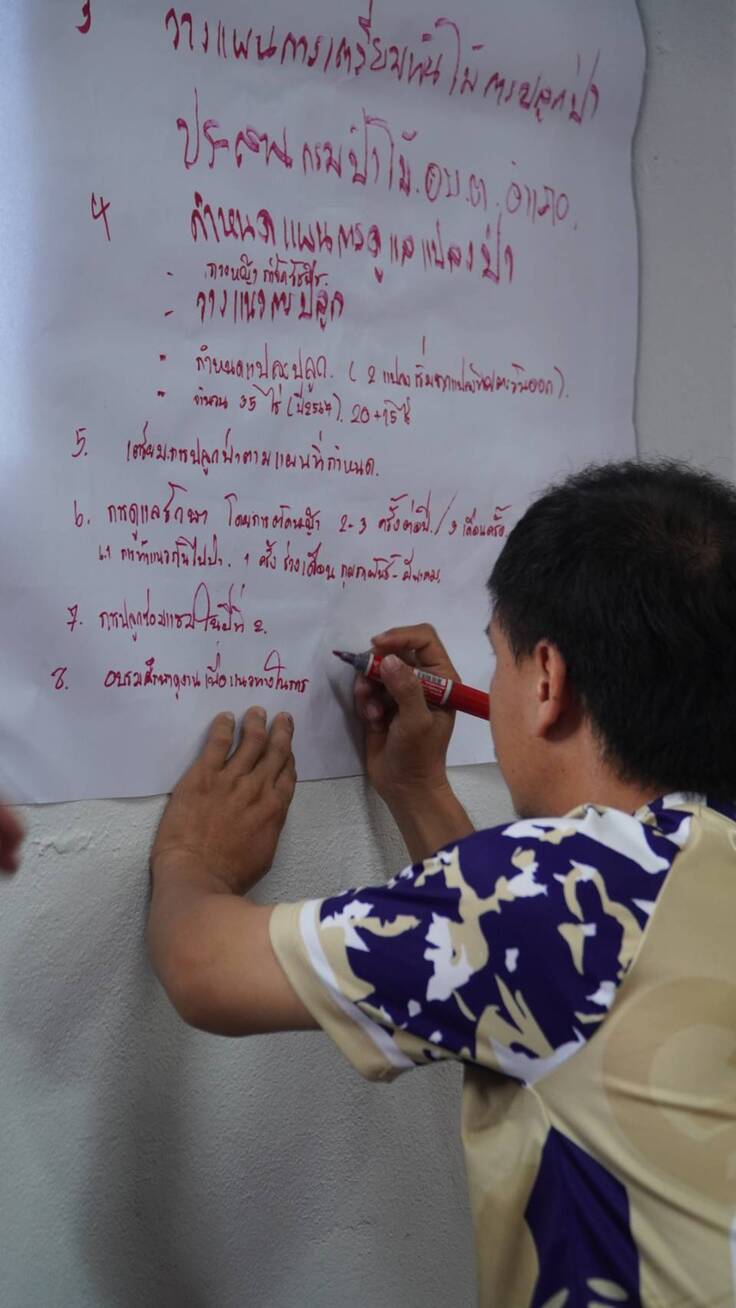 3 วางแผนการเตรียมต้นไม้ การปลูกป่า
ประสาน กรมป่าไม้. อบ.ต. อำเภอ.
4 กำหนดแผนการดูแลแปลงป่า
- ถางหญ้า
- วางแนวการปลูก
- กำหนดแปลงปลูก. ( 2 แปลง เริ่มจากแปลงทิศตะวันออก ).
- จำนวน 35 ไร่ (ปี2564). 20+15ไร่
5. เตรียมการปลูกป่าตามแผนที่กำหนด.
6. การดูแลรักษา โดยการตัดหญ้า 2-3 ครั้งต่อปี. / 3 เดือนครั้ง
6.1 การทำแนวกันไฟป่า. 1 ครั้ง ช่วงเดือน กุมภาพันธ์ - มีนาคม.
7. การปลูกซ่อมแซมในปีที่ 2.
8. อบรมศึกษาดูงาน เพื่อแนวทางในการ